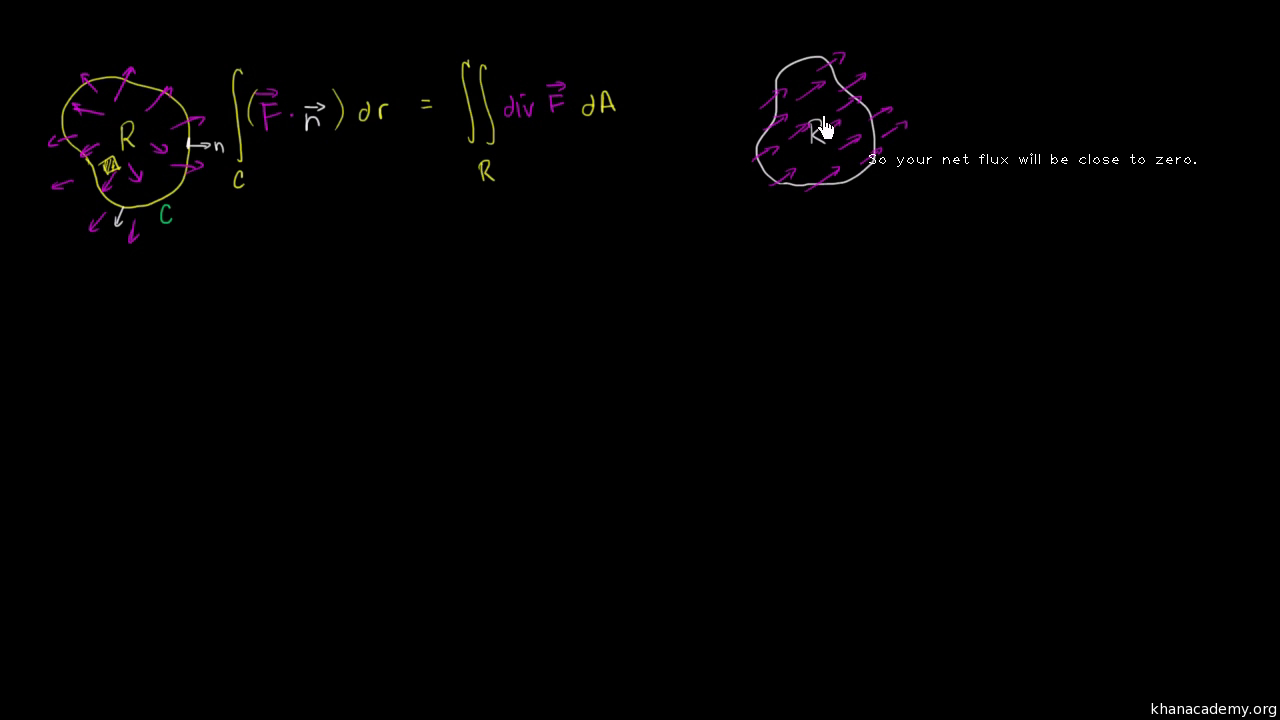 R
n
C
∫_C (F⃗ · n⃗) dr = ∬_R div F⃗ dA
R
So your net flux will be close to zero.
khanacademy.org